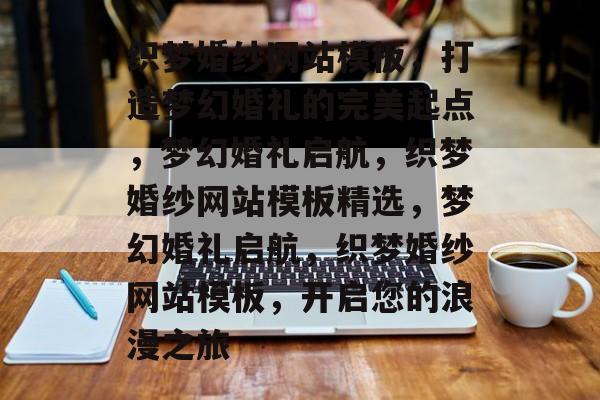 织梦婚纱网站模板，打
造梦幻婚礼的完美起点
，梦幻婚礼启航，织梦
婚纱网站模板精选，梦
幻婚礼启航，织梦婚纱
网站模板，开启您的浪
漫之旅